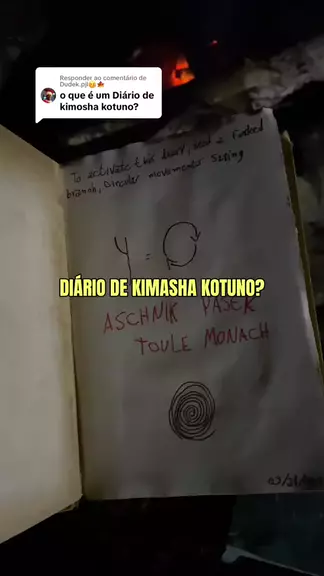 Responder ao comentário de
Dudek.pjl😋🍁
o que é um Diário de
kimosha kotuno?
To activate this diary, need a forked
branch, circular movements saying
Y =
DIÁRIO DE KIMASHA KOTUNO?
ASCHNIK VASEK
TOULE MONACH